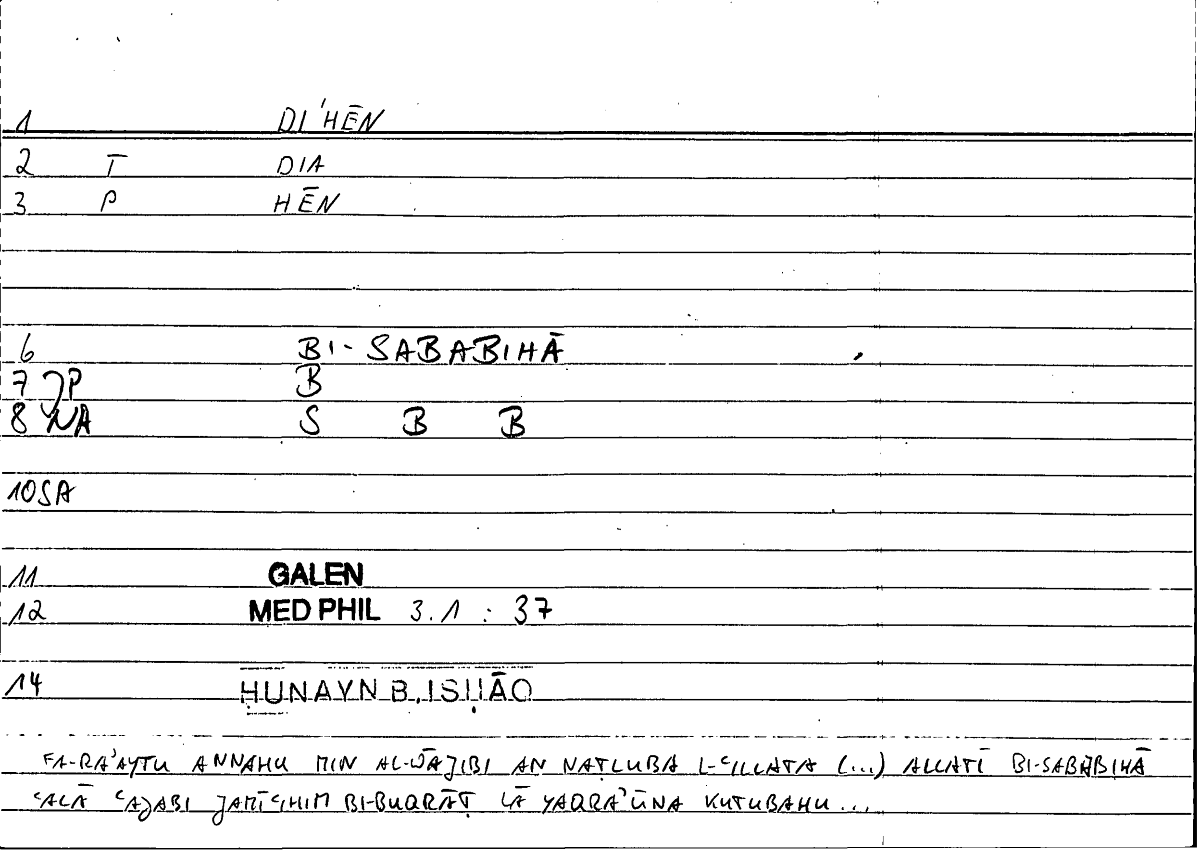 1 DI'HĒN
2 T DIA
3 P HĒN
6 BI-SABABIHĀ
7 P B
8 NA S B B
10 SA
11 GALEN
12 MED PHIL 3.1 : 37
14 ḤUNAYN B. ISḤĀQ
FA-RA'AYTU ANNAHU MIN AL-WĀJIBI AN NAṬLUBA L-ʿILLATA (...) ALLATĪ BI-SABABIHĀ
ʿALĀ ʿAJABI JAMĪʿIHIM BI-BUQRĀṬ LĀ YAQRA'ŪNA KUTUBAHU...